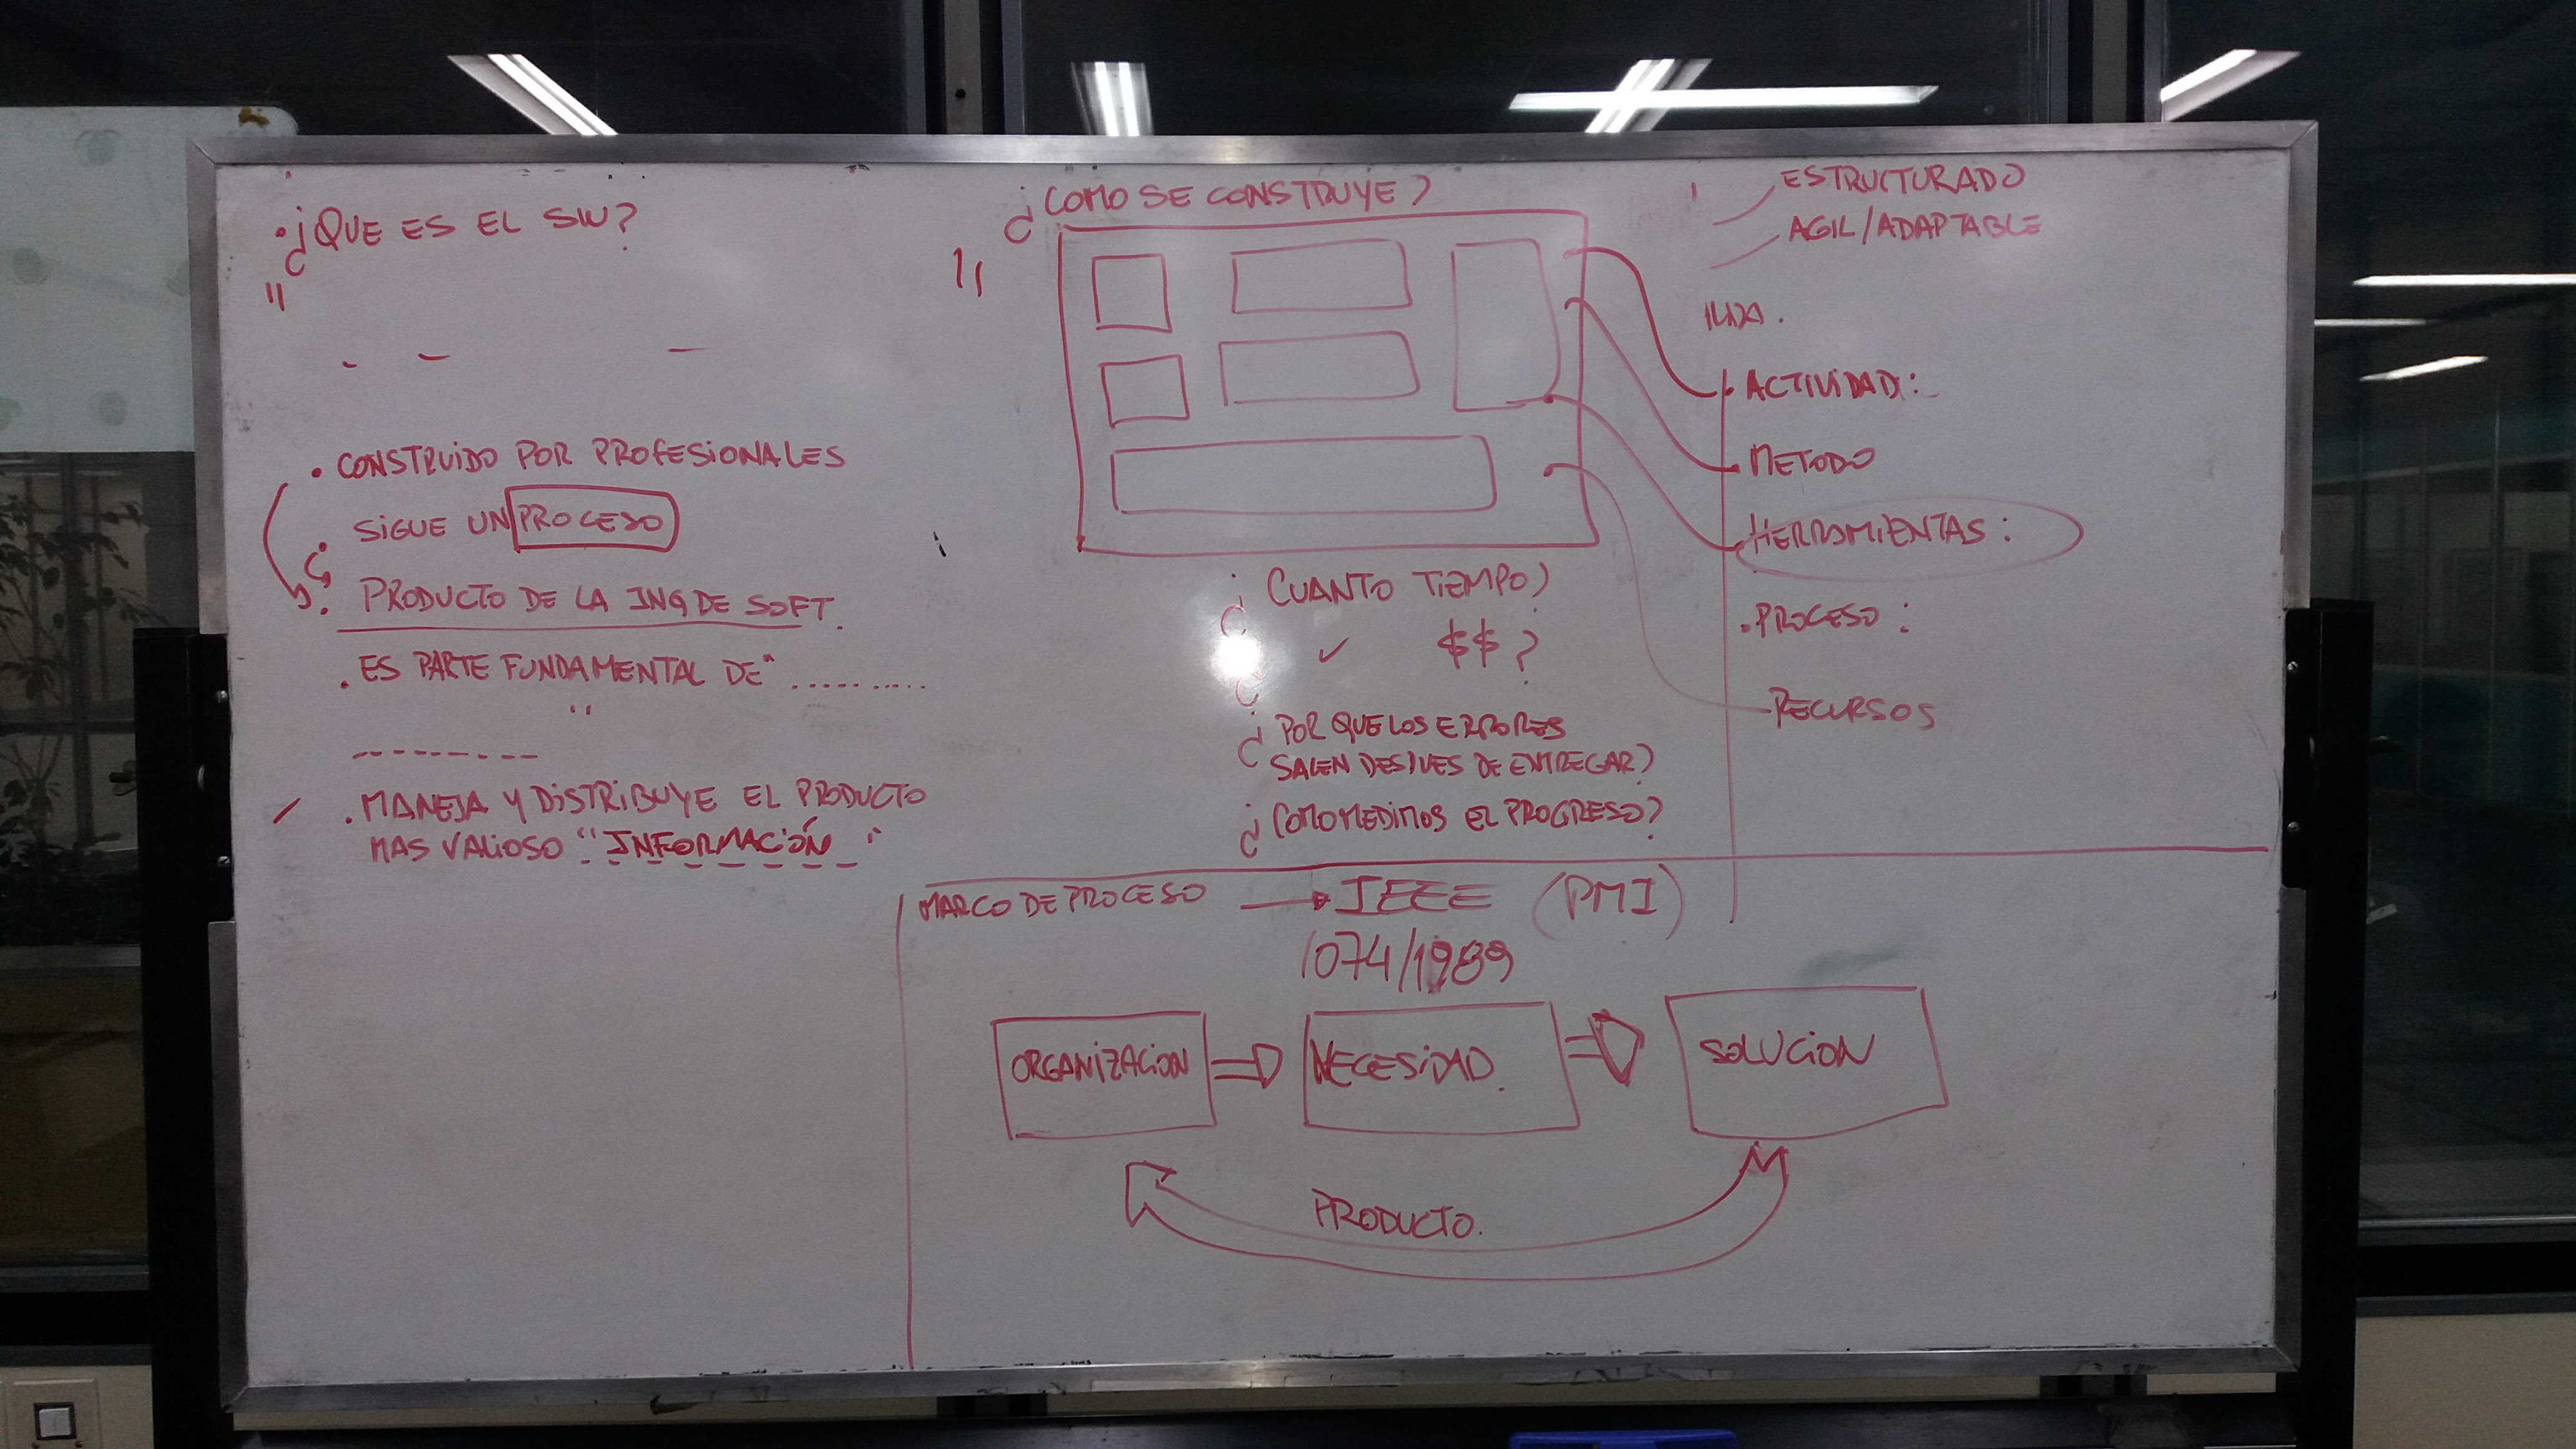 ¿QUE ES EL SW?
. CONSTRUIDO POR PROFESIONALES
. SIGUE UN PROCESO
. PRODUCTO DE LA ING DE SOFT.
. ES PARTE FUNDAMENTAL DE " ..........
---------
. MANEJA Y DISTRIBUYE EL PRODUCTO
MAS VALIOSO "INFORMACIÓN"
¿COMO SE CONSTRUYE?
¿CUANTO TIEMPO?
¿ ✓ $$?
¿POR QUE LOS ERRORES
SALEN DESPUES DE ENTREGAR?
¿COMO MEDIMOS EL PROGRESO?
ESTRUCTURADO
AGIL/ADAPTABLE
. ACTIVIDAD:
. METODO
HERRAMIENTAS:
. PROCESO:
RECURSOS
MARCO DE PROCESO → IEEE (PMI)
1074/1989
ORGANIZACION
NECESIDAD.
SOLUCION
PRODUCTO.